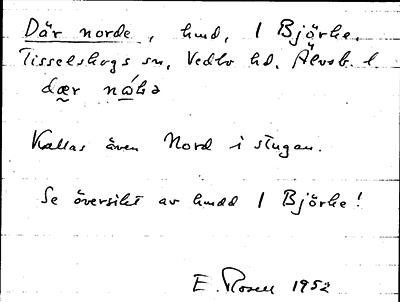 Där norde, hmd, 1 Björke,
Tisselskogs sn, Vedbo hd, Älvsb. l.
dær
Kallas även Nord i stugan.
Se översikt av hmdd 1 Björke!
E. Rosell 1952